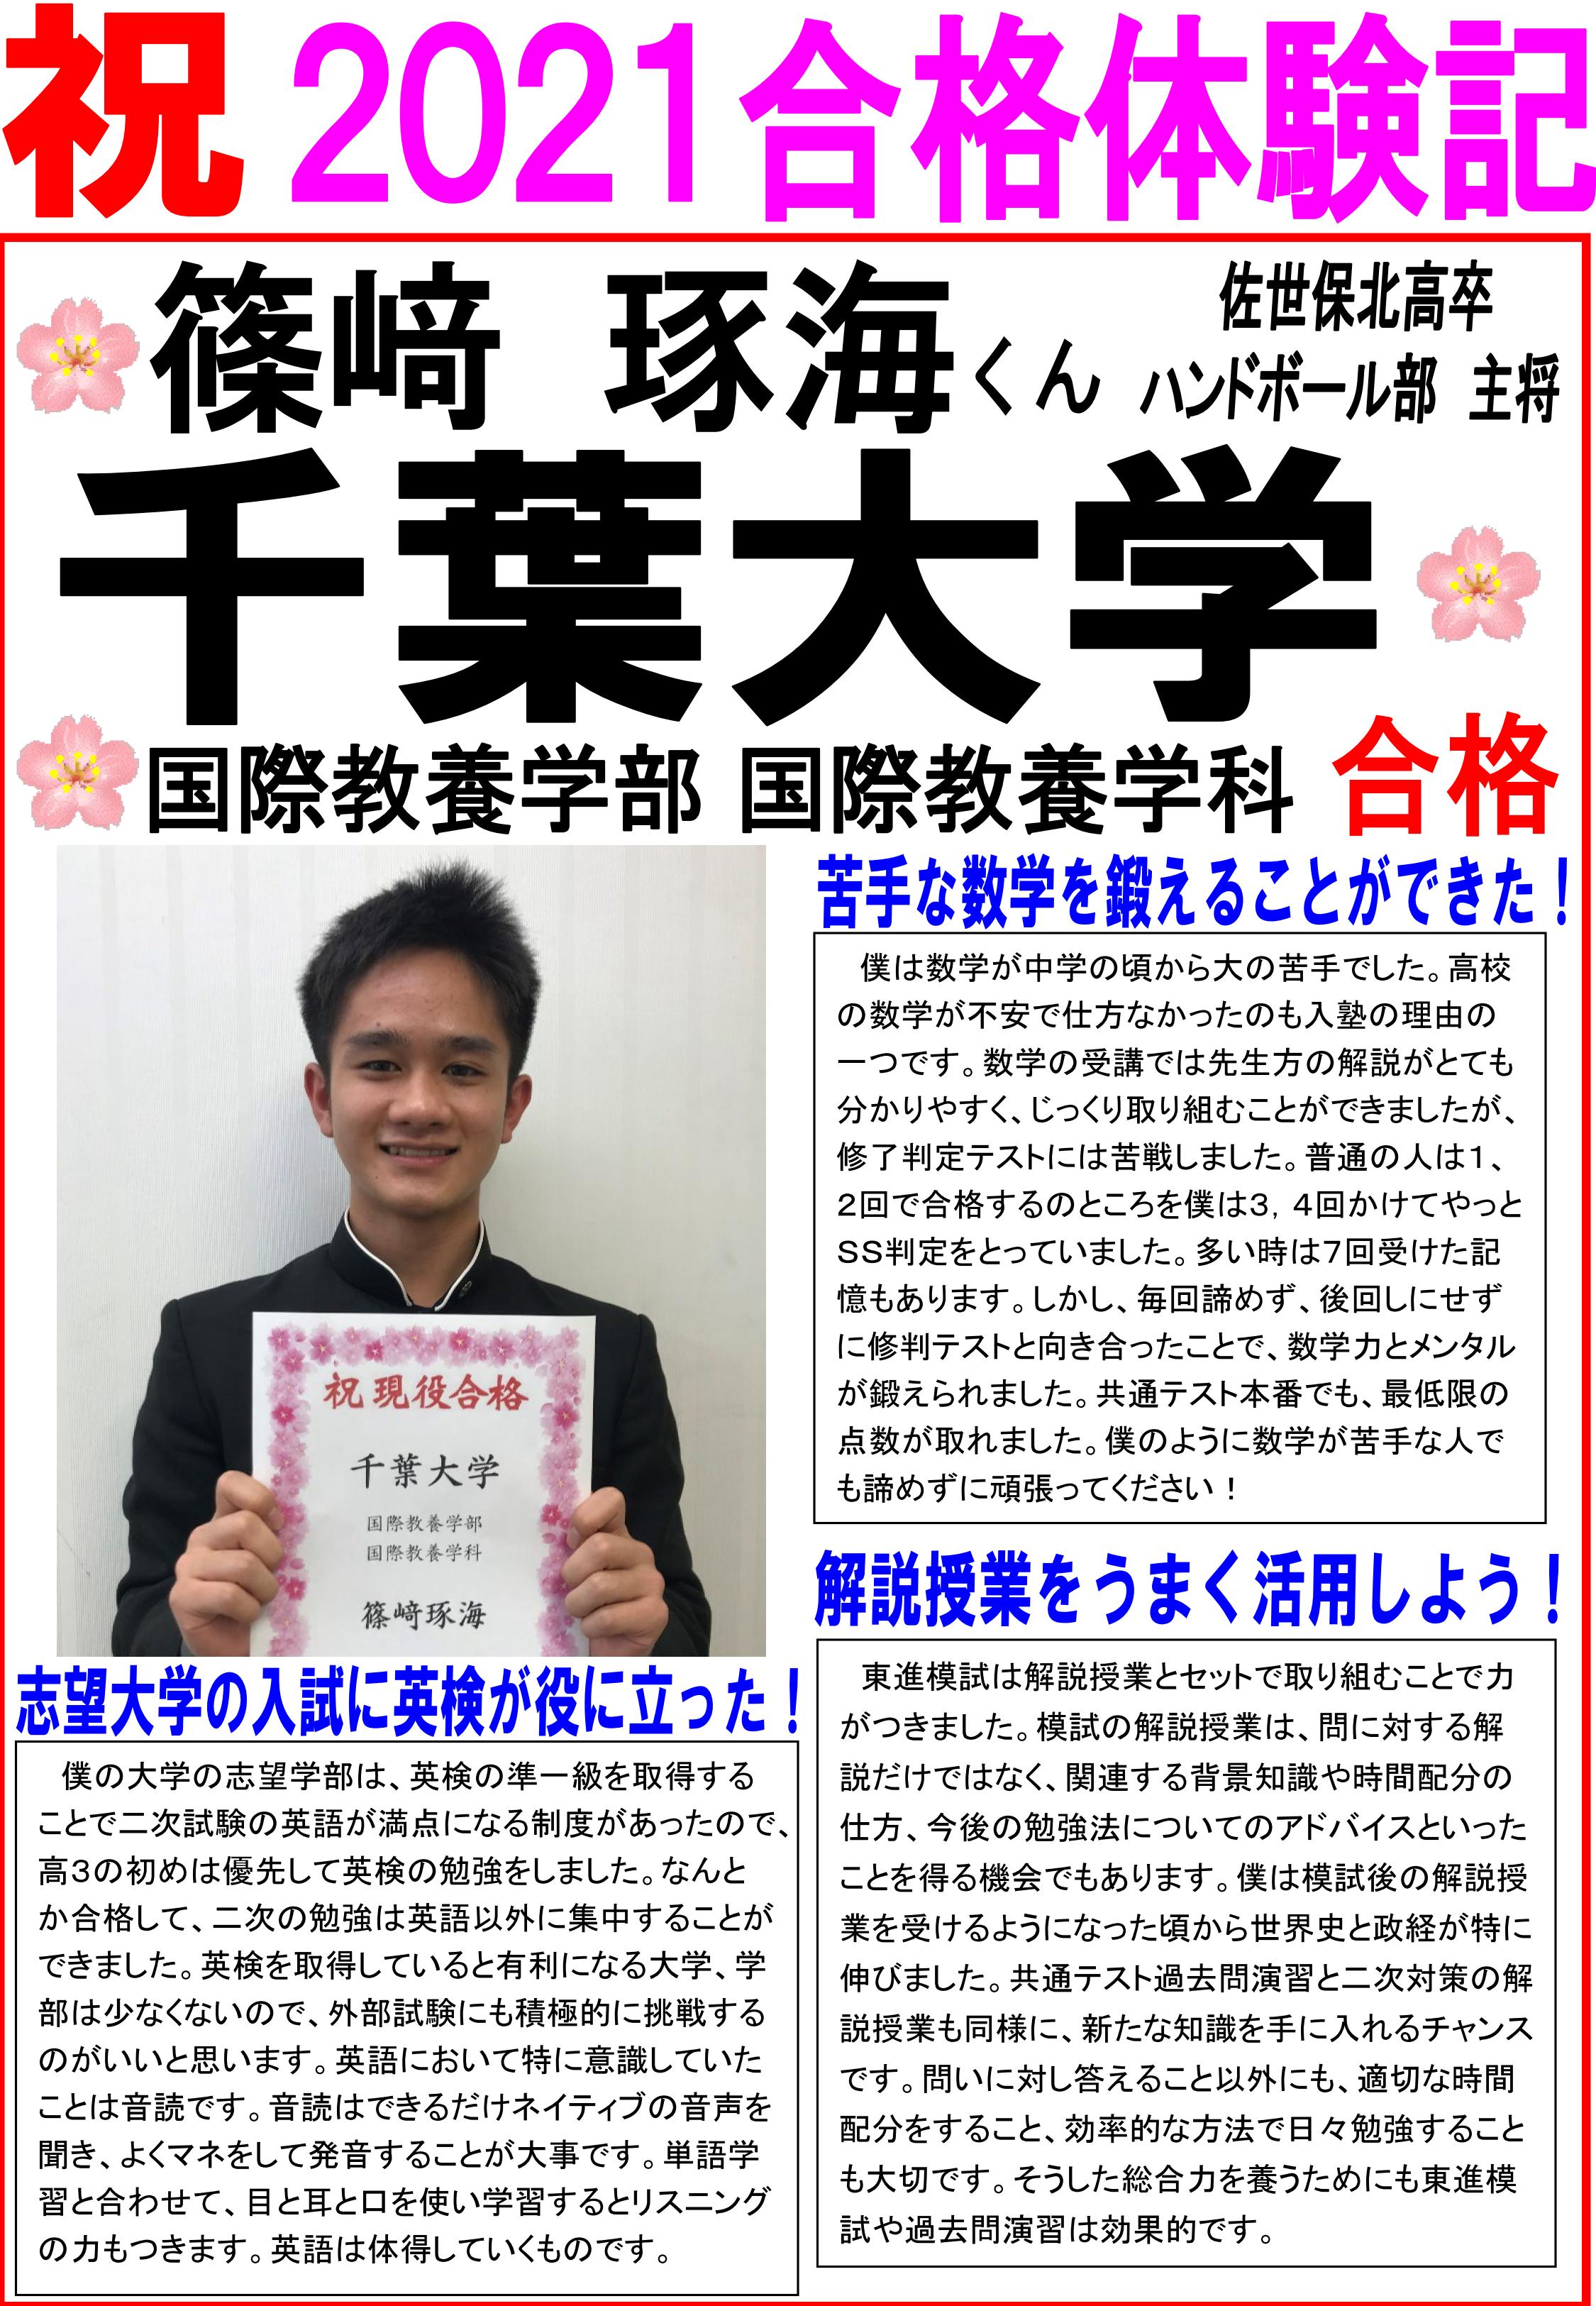 祝 2021合格体験記
篠﨑 琢海くん
佐世保北高卒
ハンドボール部 主将
千葉大学
国際教養学部 国際教養学科 合格
祝 現役合格
千葉大学
国際教養学部
国際教養学科
篠﨑琢海
苦手な数学を鍛えることができた！
僕は数学が中学の頃から大の苦手でした。高校
の数学が不安で仕方なかったのも入塾の理由の
一つです。数学の受講では先生方の解説がとても
分かりやすく、じっくり取り組むことができましたが、
修了判定テストには苦戦しました。普通の人は１、
２回で合格するのところを僕は３，４回かけてやっと
ＳＳ判定をとっていました。多い時は７回受けた記
憶もあります。しかし、毎回諦めず、後回しにせず
に修判テストと向き合ったことで、数学力とメンタル
が鍛えられました。共通テスト本番でも、最低限の
点数が取れました。僕のように数学が苦手な人で
も諦めずに頑張ってください！
志望大学の入試に英検が役に立った！
僕の大学の志望学部は、英検の準一級を取得する
ことで二次試験の英語が満点になる制度があったので、
高３の初めは優先して英検の勉強をしました。なんと
か合格して、二次の勉強は英語以外に集中することが
できました。英検を取得していると有利になる大学、学
部は少なくないので、外部試験にも積極的に挑戦する
のがいいと思います。英語において特に意識していた
ことは音読です。音読はできるだけネイティブの音声を
聞き、よくマネをして発音することが大事です。単語学
習と合わせて、目と耳と口を使い学習するとリスニング
の力もつきます。英語は体得していくものです。
解説授業をうまく活用しよう！
東進模試は解説授業とセットで取り組むことで力
がつきました。模試の解説授業は、問に対する解
説だけではなく、関連する背景知識や時間配分の
仕方、今後の勉強法についてのアドバイスといった
ことを得る機会でもあります。僕は模試後の解説授
業を受けるようになった頃から世界史と政経が特に
伸びました。共通テスト過去問演習と二次対策の解
説授業も同様に、新たな知識を手に入れるチャンス
です。問いに対し答えること以外にも、適切な時間
配分をすること、効率的な方法で日々勉強すること
も大切です。そうした総合力を養うためにも東進模
試や過去問演習は効果的です。